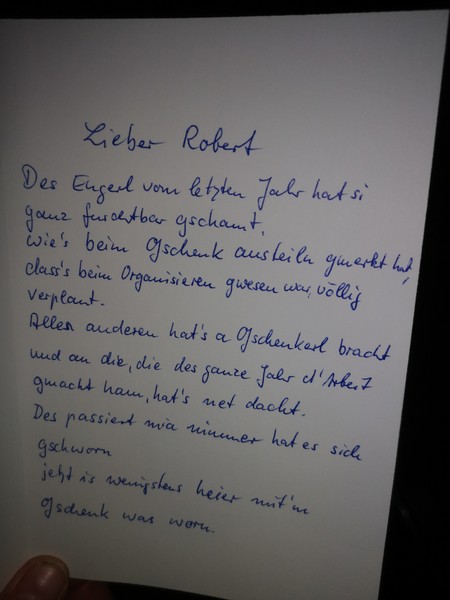 Lieber Robert
Des Engerl vom letzten Jahr hat si
ganz furchtbar gschamt,
wie's beim Gschenk austeiln gmerkt hat,
dass's beim Organisieren gwesen war, völlig
verplant.
Allen anderen hat's a Gschenkerl bracht
und an die, die des ganze Jahr d'Arbeit
gmacht ham, hat's net dacht.
Des passiert mia nimmer hat es sich
gschworn
jetzt is wenigstens heier mit'm
Gschenk was worn.